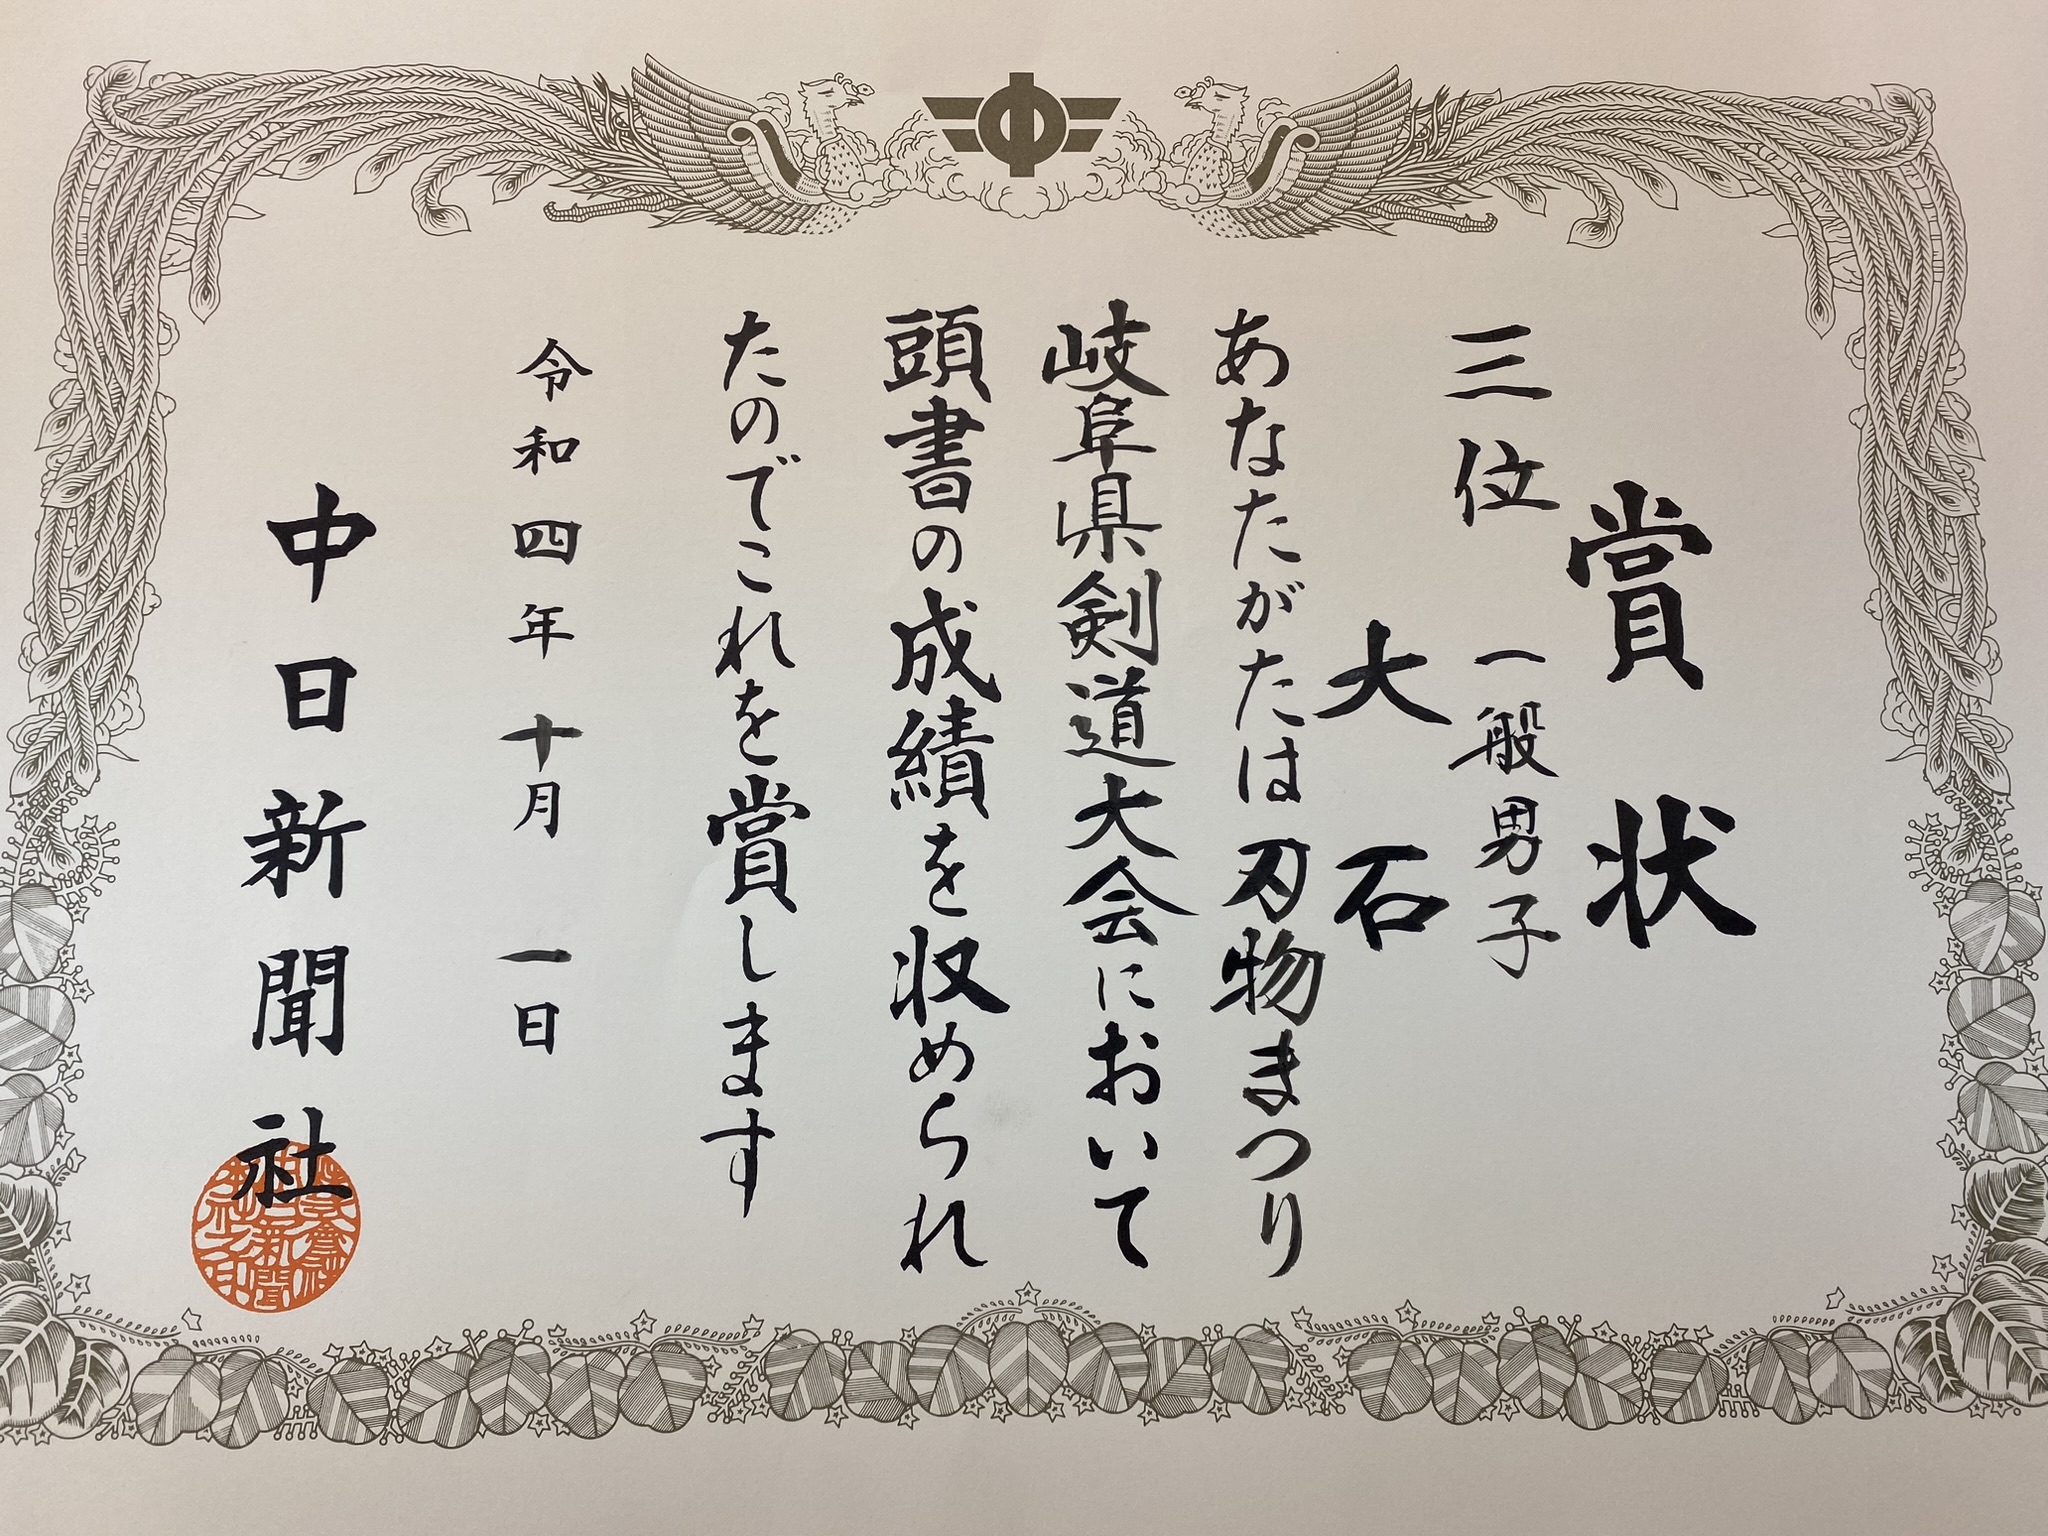 賞状
三位 一般男子
大石
あなたがたは刃物まつり
岐阜県剣道大会において
頭書の成績を収められ
たのでこれを賞します
令和四年十月 一日
中日新聞社